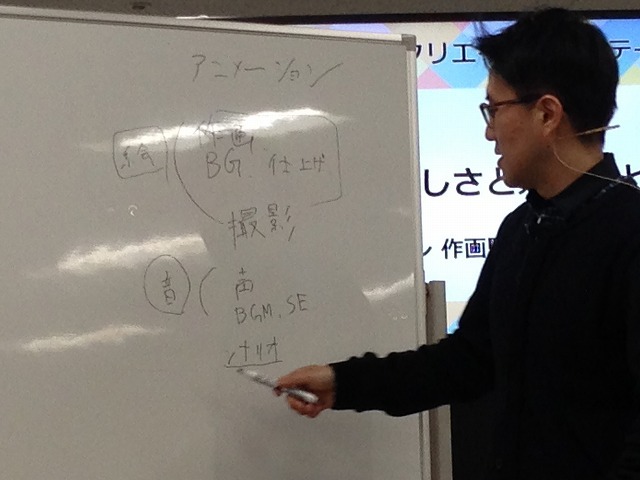 アニメーション
絵 作画
BG 仕上げ
撮影
音 声
BGM、SE
シナリオ
クリエ テー
しさと
ン 作画